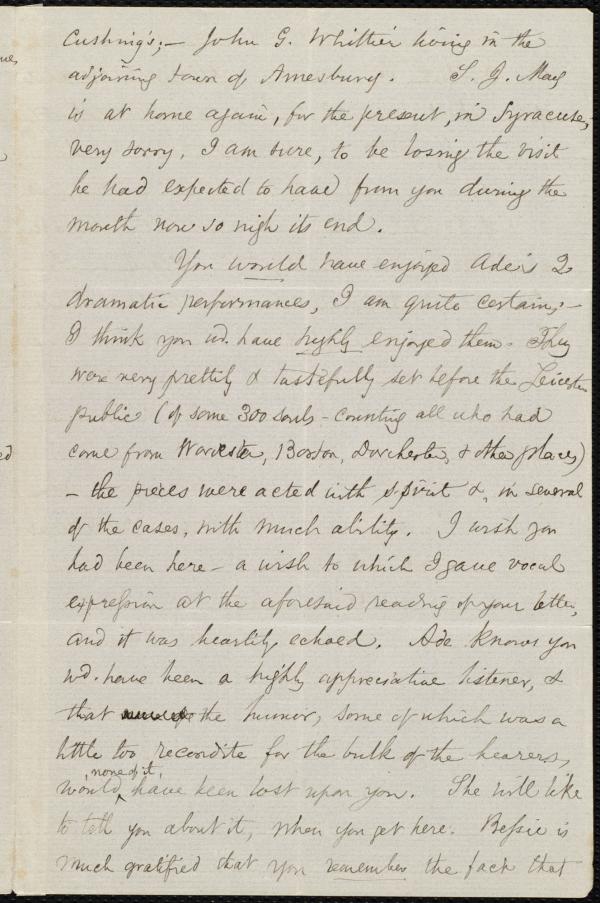 Cushing's;— John G. Whittier living in the
adjoining town of Amesbury. S. J. May
is at home again, for the present, in Syracuse,
very sorry, I am sure, to be losing the visit
he had expected to have from you during the
month now so nigh its end.
You would have enjoyed Ade's 2
dramatic performances, I am quite certain;—
I think you wd. have highly enjoyed them. They
were very prettily & tastefully set before the Leicester
public (of some 300 souls - counting all who had
come from Worcester, Boston, Dorchester, & other places)
- the pieces were acted with spirit &, in several
of the cases, with much ability. I wish you
had been here - a wish to which I gave vocal
expression at the aforesaid reading of your letter,
and it was heartily echoed. Ade knows you
wd. have been a highly appreciative listener, &
that the humor, some of which was a
little too recondite for the bulk of the hearers,
none of it,
would have been lost upon you. She will like
to tell you about it, when you get here. Bessie is
much gratified that you remember the fact that